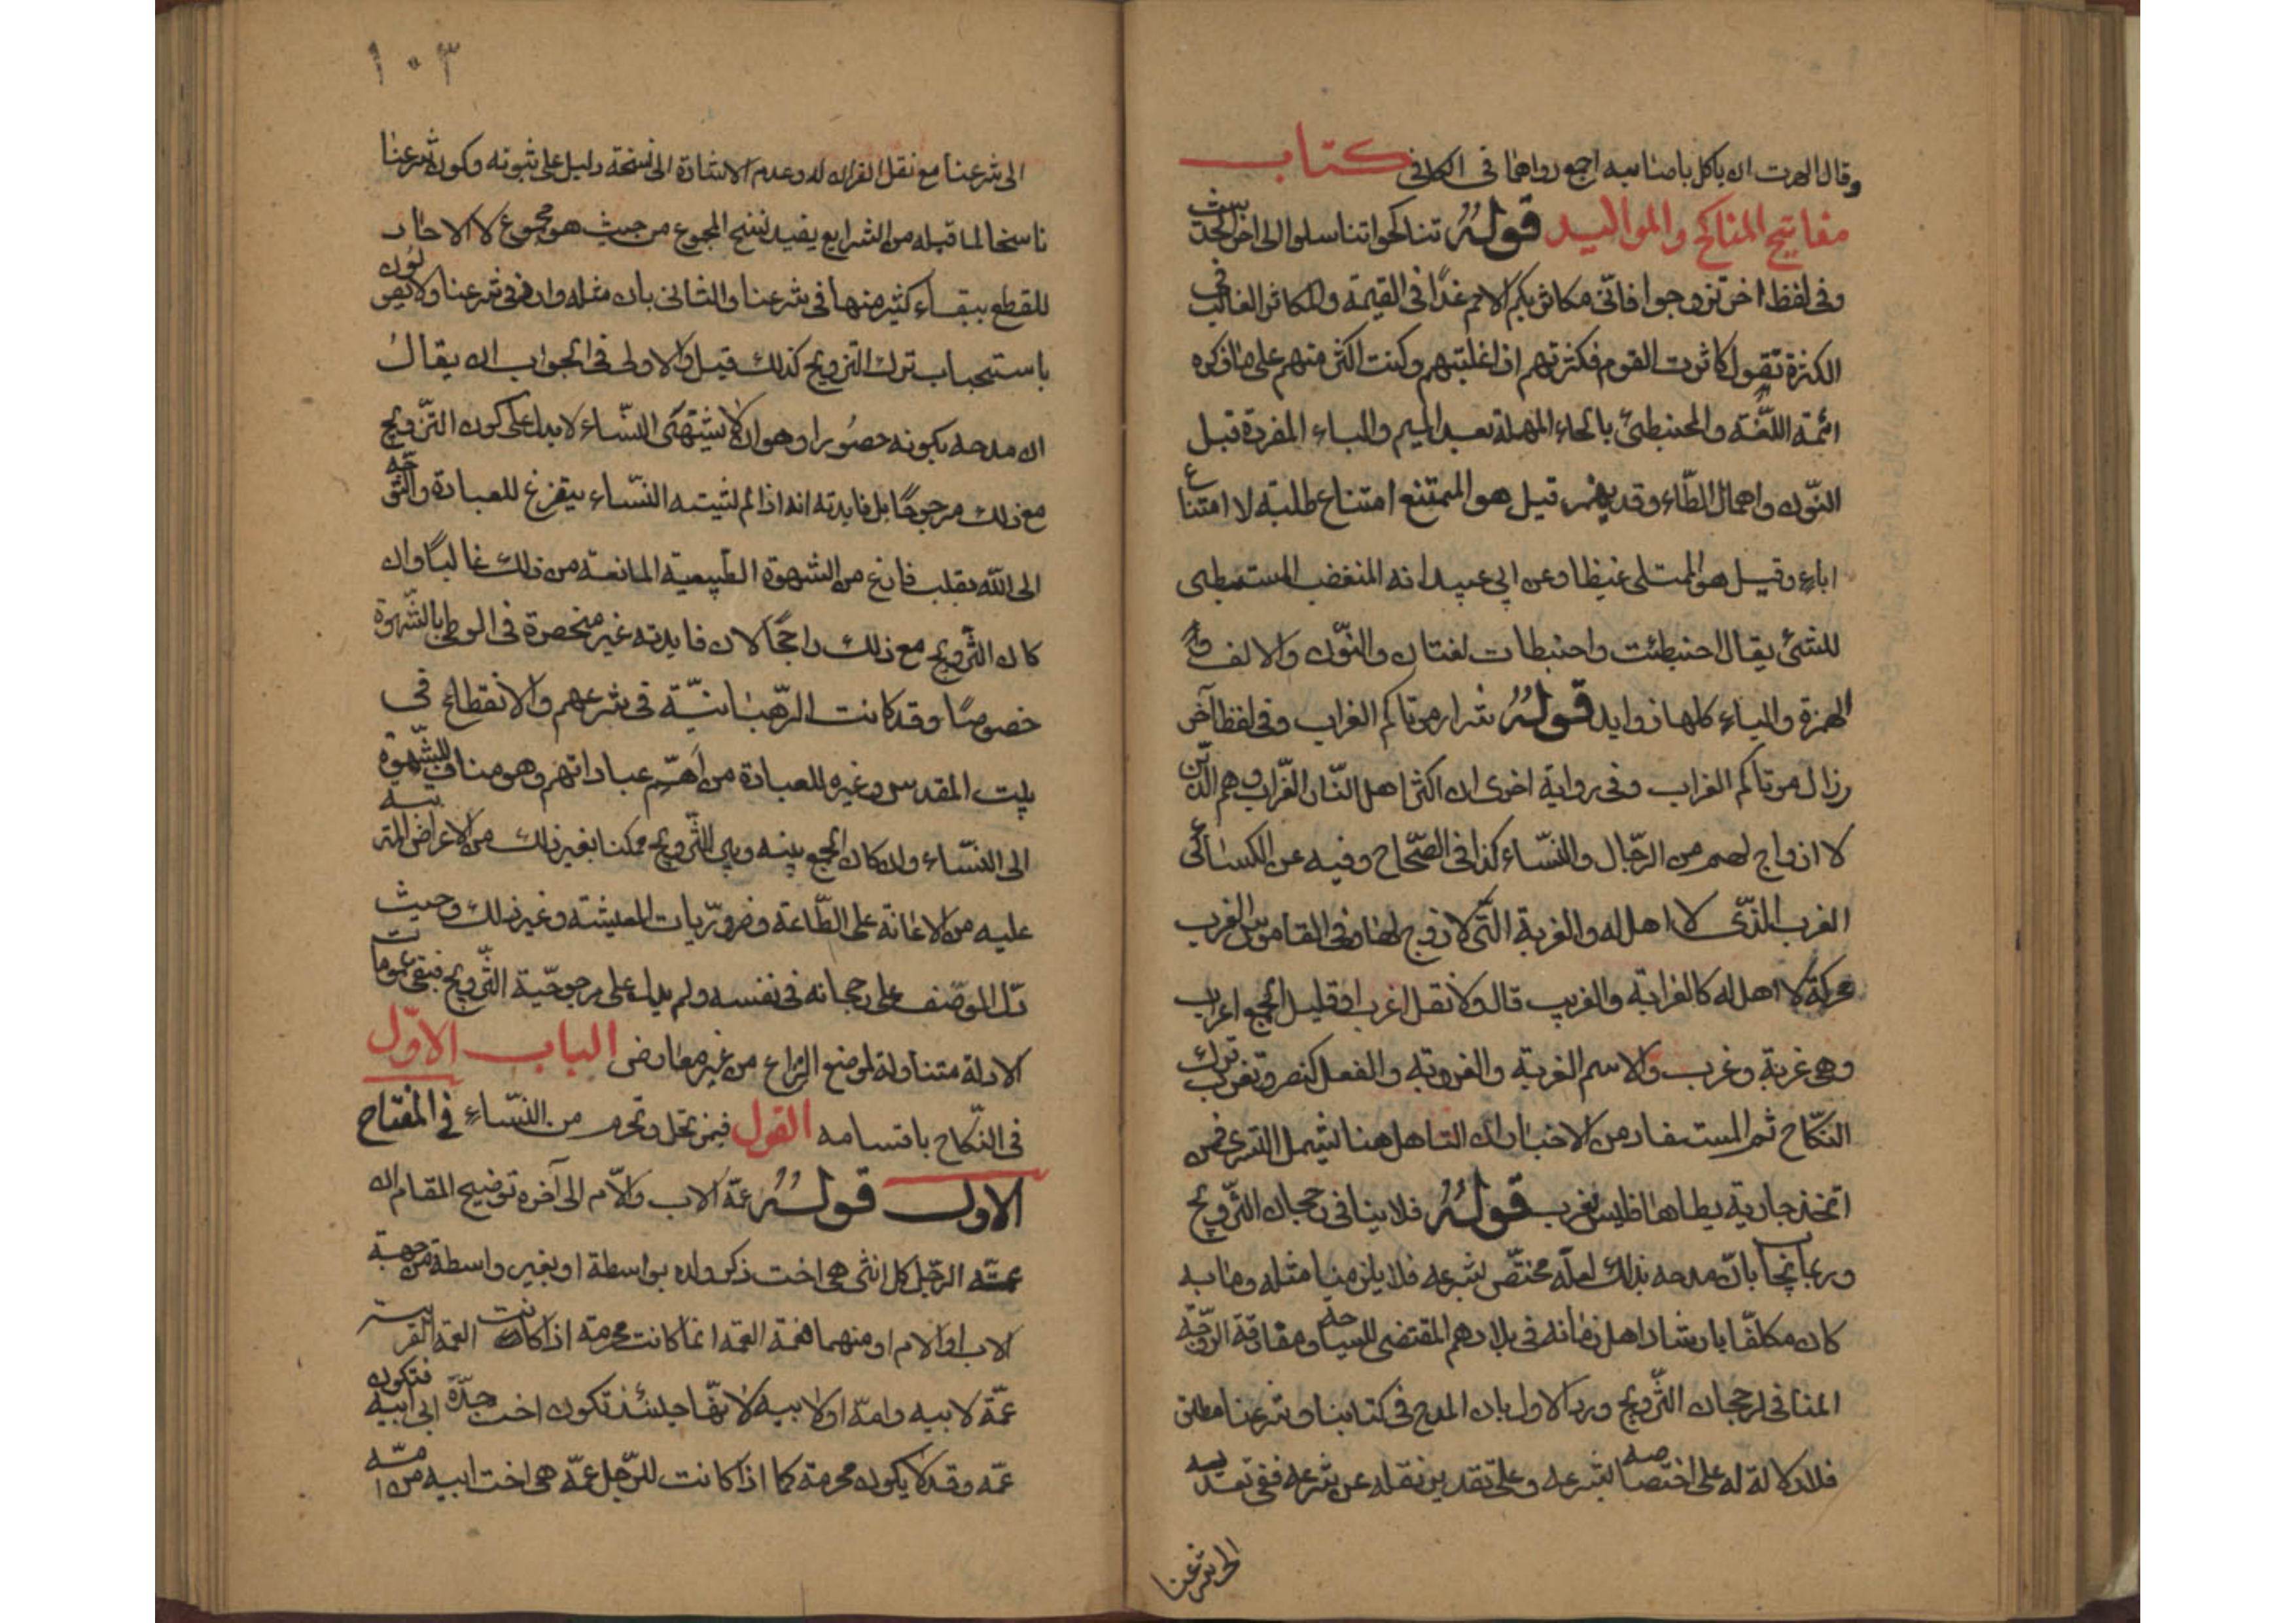 وقال الهرت ان ياكل باصنابيه اجمع رواهما فى الكافى كتاب
مفاتيح المناكح والمواليد قوله تناكحوا تناسلوا الى اخر الحديث
وفى لفظ اخر تزوجوا فانّى مكاثر بكم الامم غدًا فى القيمة والمكاثر الغالب فى
الكثرة تقول كاثرت القوم فكثرتهم اذا غلبتهم وكنت اكثر منهم على ما ذكره
ائمة اللّغة والمحنبطئ بالحاء المهملة بعد الميم والباء المفردة قبل
النّون واهمال الطّاء وقد يهمز قيل هو الممتنع امتناع طلبة لا امتناع
اباء وقيل هو الممتلى غيظا وعن ابى عبيد انه المتغضب المستبطى
للشئ يقال احنبطئت واحنبطات لغتان والنّون والالف و
الهمزة والياء كلها زوايد قوله شرار موتاكم العزاب وفى لفظ آخر
رذال موتاكم العزاب وفى رواية اخرى ان اكثر اهل النّار العزّاب وهم الذين
لا ازواج لهم من الرّجال والنّساء كذا فى الصّحاح وفيه عن الكسائى
العزب الذّى لا اهل له والعزبة التّى لا زوج لها وفى القاموس العزب
محركة لا اهل له كالعزابة والعزيب قال ولا تقل اعزب او قليل الجمع اعزاب
وهى عزبة وعزب والاسم العزبة والعزوبة والفعل كنصر وتعزب ترك
النّكاح ثم المستفاد من الاخبار ان التاهل هنا يشمل التسرى فمن
اتخذ جارية يطاها فليس بعزب قوله فلا ينافى رجحان التّزويج
وربما يجاب بانّ مدحه بذلك لعلّه مختصّ بشرعه فلا يلزم منا مثله وما به
كان مكلّفا بارشاد اهل زمانه فى بلادهم المقتضى للسياحة ومفارقة الزوجة
المنافى لرجحان التّزويج ورد الاول بان المدح فى كتابنا وشرعنا مطلق
فلا دلالة له على اختصاصه بشرعه وعلى تقدير نقله عن شرعه ففى تعديه
الى شرعنا
١٠٣
الى شرعنا مع نقل القران له وعدم الاشارة الى نسخه دليل على ثبوته وكون شرعنا
ناسخا لما قبله من الشرايع يفيد نسخ المجموع من حيث هو مجموع لا الاحاد
للقطع ببقاء كثير منها فى شرعنا والثانى بان مثله وارد فى شرعنا ولا يقولون
باستحباب ترك التزويج كذلك قيل والاولى فى الجواب ان يقال
ان مدحه بكونه حصورا وهو ان لا يشتهى النّساء لا يدل على كون التّزويج
مع ذلك مرجوحًا بل فايدته انه اذا لم يشتهه النّساء يتفرغ للعبادة والتوجه
الى اللّه بقلب فارغ من الشهوة الطّبيعية المانعة من ذلك غالبًا وان
كان التّزويج مع ذلك راجحًا لان فايدته غير منحصرة فى الوطى بالشّهوة
خصوصًا وقد كانت الرّهبانيّة فى شرعهم والانقطاع فى
بيت المقدس وغيره للعبادة من اهمّ عباداتهم وهو مناف للشّهوة
الى النّساء وان كان الجمع بينه وبين التّزويج ممكنا بغير ذلك من الاعراض المترتبة
عليه من الاعانة على الطّاعة وضروريّات المعيشة وغير ذلك وحيث
دلّ الوصف على رجحانه فى نفسه ولم يدل على مرجوحيّة التّزويج فتبقى عمومات
الادلة متناولة لموضع النزاع من غير معارض الباب الاوّل
فى النّكاح باقسامه القول فيمن تحل وتحرم من النّساء فى المفتاح
الاول قوله عمّة الاب والاّم الى آخره توضيح المقام ان
عمّة الرّجل كل انثى هى اخت ذكر ولده بواسطة او بغير واسطة من جهة
الاب او الام او منهما فعمة العمة انما كانت محرمة اذا كانت العمة القريبة
عمّة لابيه وامّه او لابيه لانّها حينئذ تكون اخت جدّه ابى ابيه فتكون
عمّه وقد لا يكون محرمة كما اذا كانت للرّجل عمّة هى اخت ابيه من امّه